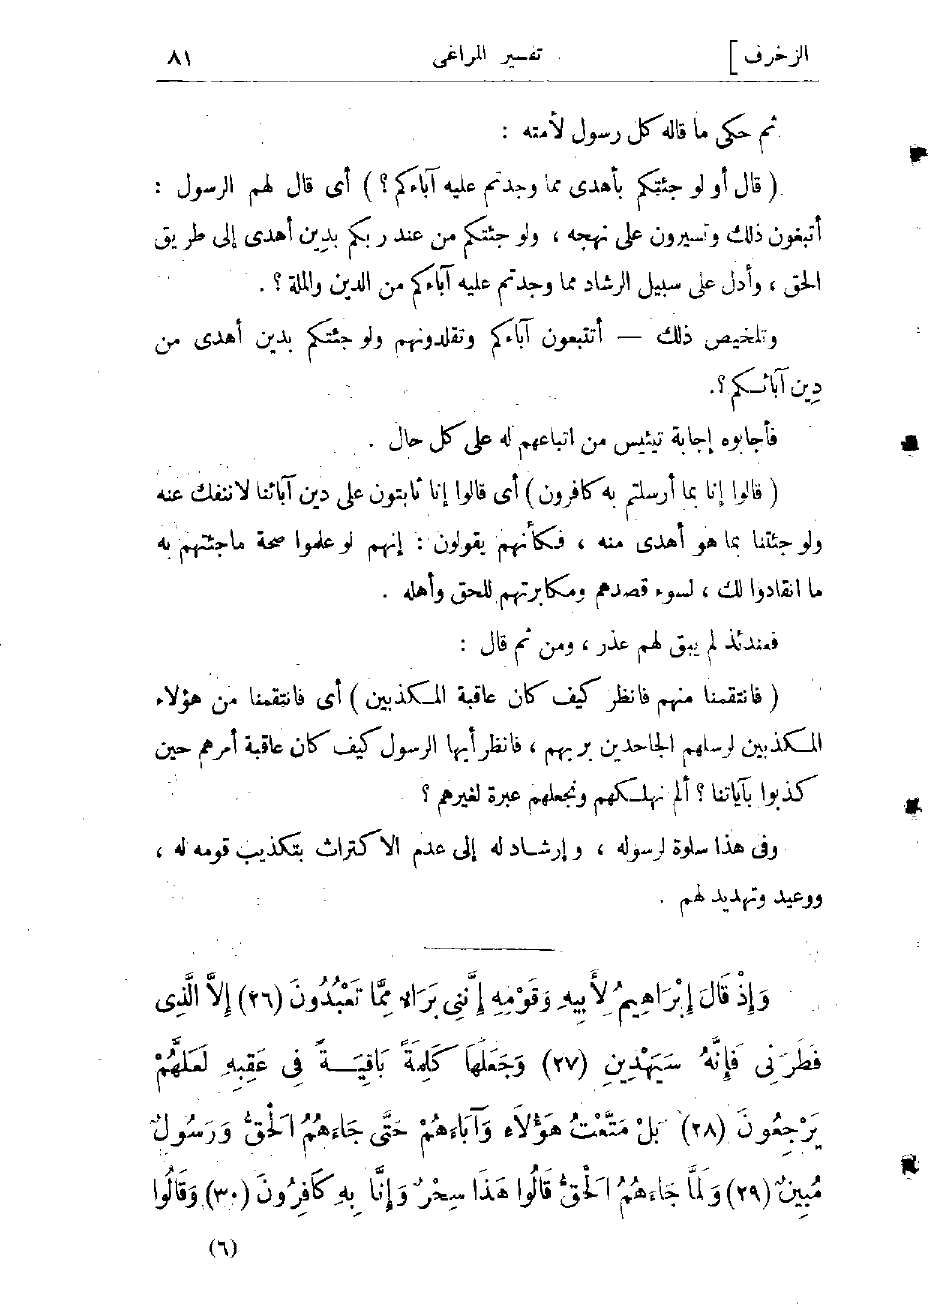 الزخرف ] تفسير المراغى ٨١
ثم حكى ما قاله كل رسول لأمته :
( قال أو لو جئتكم بأهدى مما وجدتم عليه آباءكم ؟ ) أى قال لهم الرسول :
أتبغون ذلك وتسيرون على نهجه ، ولو جئتكم من عند ربكم بدِين أهدى إلى طريق
الحق ، وأدل على سبيل الرشاد مما وجدتم عليه آباءكم من الدين والملة ؟ .
وتلخيص ذلك — أتتبعون آباءكم وتقلدونهم ولو جئتكم بدين أهدى من
دِين آبائكم ؟.
فأجابوه إجابة تيئيس من اتباعهم له على كل حال .
( قالوا إنا بما أرسلتم به كافرون ) أى قالوا إنا ثابتون على دين آبائنا لاننفك عنه
ولو جئتنا بما هو أهدى منه ، فكأنهم يقولون : إنهم لو علموا صحة ماجئتهم به
ما انقادوا لك ، لسوء قصدهم ومكابرتهم للحق وأهله .
فعندئذ لم يبق لهم عذر ، ومن ثم قال :
( فانتقمنا منهم فانظر كيف كان عاقبة المكذبين ) أى فانتقمنا من هؤلاء
المكذبين لرسلهم الجاحدين بربهم ، فانظر أيها الرسول كيف كان عاقبة أمرهم حين
كذبوا بآياتنا ؟ ألم نهلكهم ونجعلهم عبرة لغيرهم ؟
وفى هذا سلوة لرسوله ، وإرشاد له إلى عدم الاكتراث بتكذيب قومه له ،
ووعيد وتهديد لهم .
وَإِذْ قَالَ إِبْرَاهِيمُ لِأَبِيهِ وَقَوْمِهِ إِنَّنِى بَرَاءٌ مِمَّا تَعْبُدُونَ (٢٦) إِلاَّ الَّذِى
فَطَرَنِى فَإِنَّهُ سَيَهْدِينِ (٢٧) وَجَعَلَهَا كَلِمَةً بَاقِيَةً فِى عَقِبِهِ لَعَلَّهُمْ
يَرْجِعُونَ (٢٨) بَلْ مَتَّعْتُ هَؤُلَاءِ وَآبَاءَهُمْ حَتَّى جَاءَهُمُ الْحَقُّ وَرَسُولٌ
مُبِينٌ (٢٩) وَلَمَّا جَاءَهُمُ الْحَقُّ قَالُوا هَذَا سِحْرٌ وَإِنَّا بِهِ كَافِرُونَ (٣٠) وَقَالُوا
(٦)